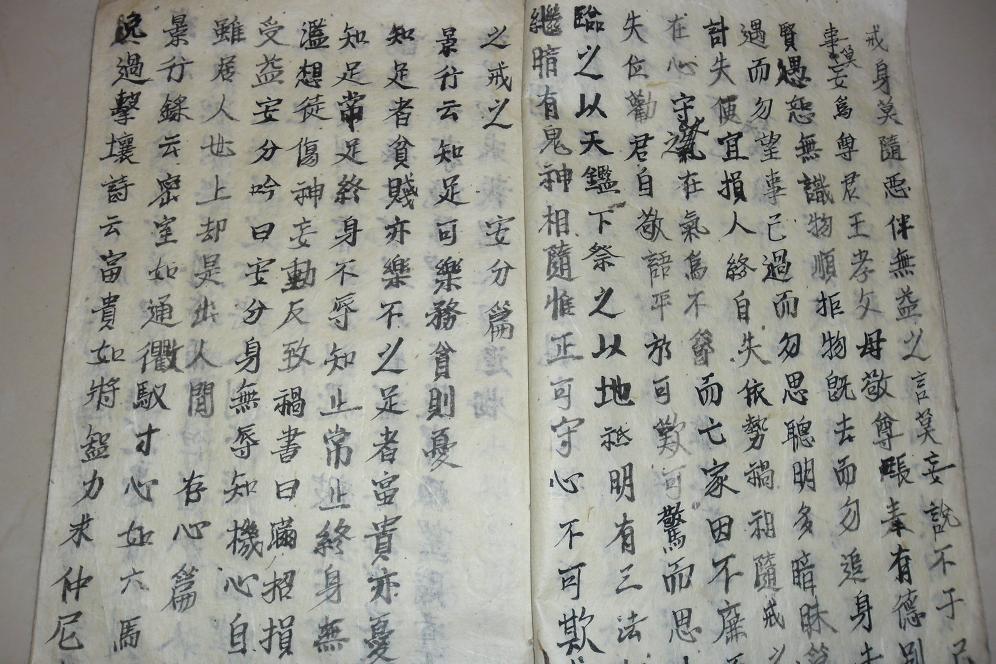 言莫妄說不干己
戒身莫隨惡伴無益之
事莫妄為尊君王孝父母敬尊長奉有德別
賢愚恕無識物順拒物既去而勿追身
遇而勿望事已過而勿思聰明多暗昧
計失便宜損人終自失依勢禍相隨戒
在心守之氣在氣為不節而亡家因不廉
失位勸君自敬語平於可歎可驚而思
臨之以天鑑下祭之以地祇明有三法
繼暗有鬼神相隨惟正可守心不可欺
之戒之 安分篇
景行云知足可樂務貧則憂
知足者貧賤亦樂不之足者富貴亦憂
知足常足終身不辱知止常止終身無
濫想徒傷神妄動反致禍書曰滿招損
受益安分吟曰安分身無辱知機心自
雖居人世上却是出人間 存心篇
景行錄云密室如通衢馭寸心如六馬
免過擊壤詩云富貴如將智力求仲尼